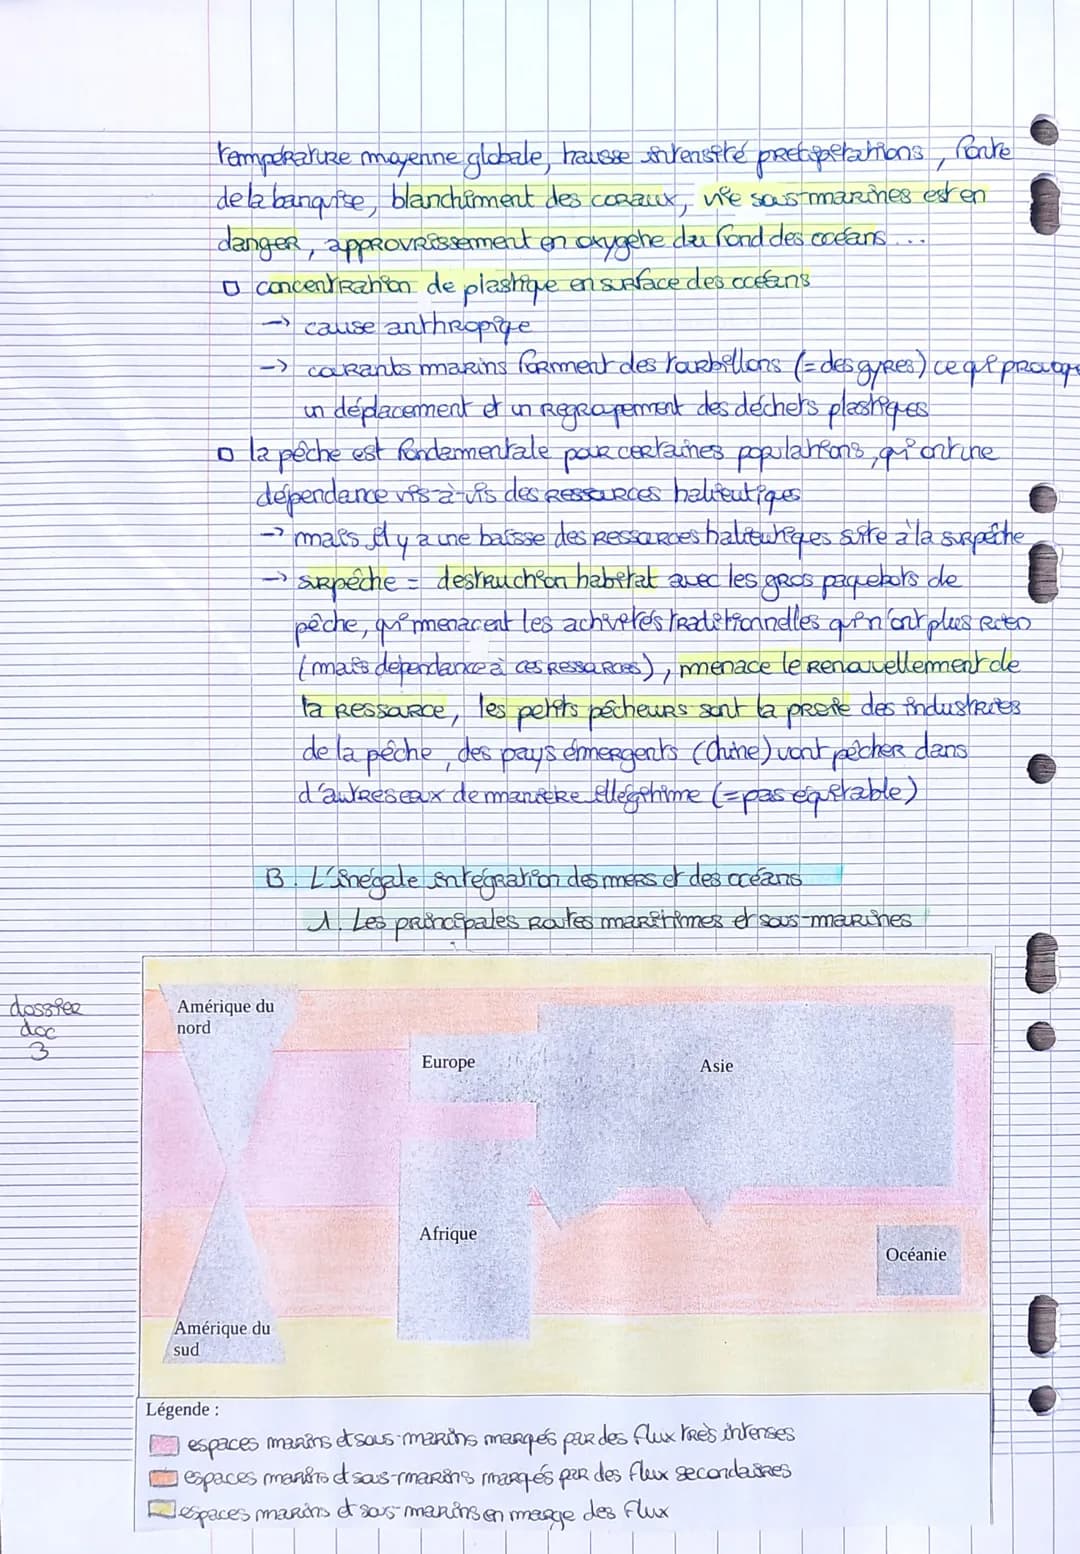 température moyenne globale, hausse intensité précipitations, fonte
de la banquise, blanchiment des coraux, vie sous-marines est en
danger, approvrissement en oxygène du fond des océans...
concentration de plastique en surface des océans
→ cause anthropique
→ courants marins forment des tourbillons (= des gyres) ce qui provoque
un déplacement et un regroupement des déchets plastiques
la pêche est fondamentale pour certaines populations, qui ont une
dépendance vis-à-vis des ressources halieutiques
→ mais il y a une baisse des ressources halieutiques suite à la surpêche
→ surpêche = destruction habitat avec les gros paquebots de
pêche, qui menacent les activités traditionnelles qui n'ont plus rien
(mais dépendance à ces ressources), menace le renouvellement de
la ressource, les petits pêcheurs sont la proie des industries
de la pêche, des pays émergents (Chine) vont pêcher dans
d'autres eaux de manière illégitime (= pas équitable)
B. L'inégale intégration des mers et des océans
1. Les principales routes maritimes et sous-marines
dossier
doc
3
Amérique du
nord
Europe
Asie
Afrique
Océanie
Amérique du
sud
Légende :
espaces marins et sous-marins marqués par des flux très intenses
espaces marins et sous-marins marqués par des flux secondaires
espaces marins et sous-marins en marge des flux